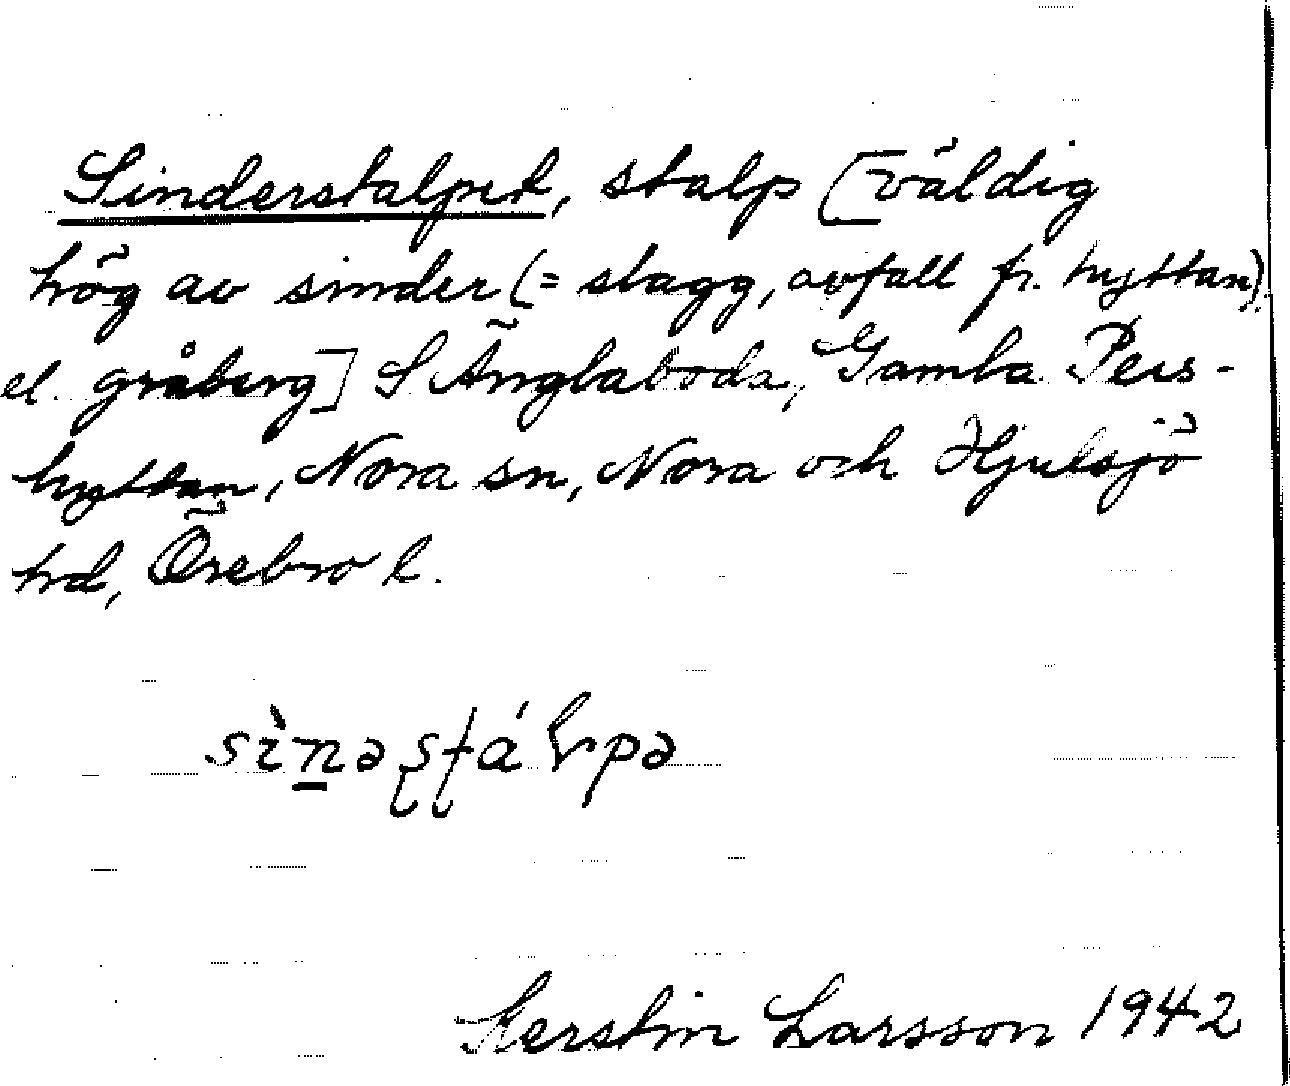 Sinderstalpet, stalp [väldig
hög av sinder (= slagg, avfall fr. hyttan)
el. gråberg] S Änglaboda, Gamla Pers-
hyttan, Nora sn, Nora och Hjulsjö
hd, Örebro l.
Kerstin Larsson 1942